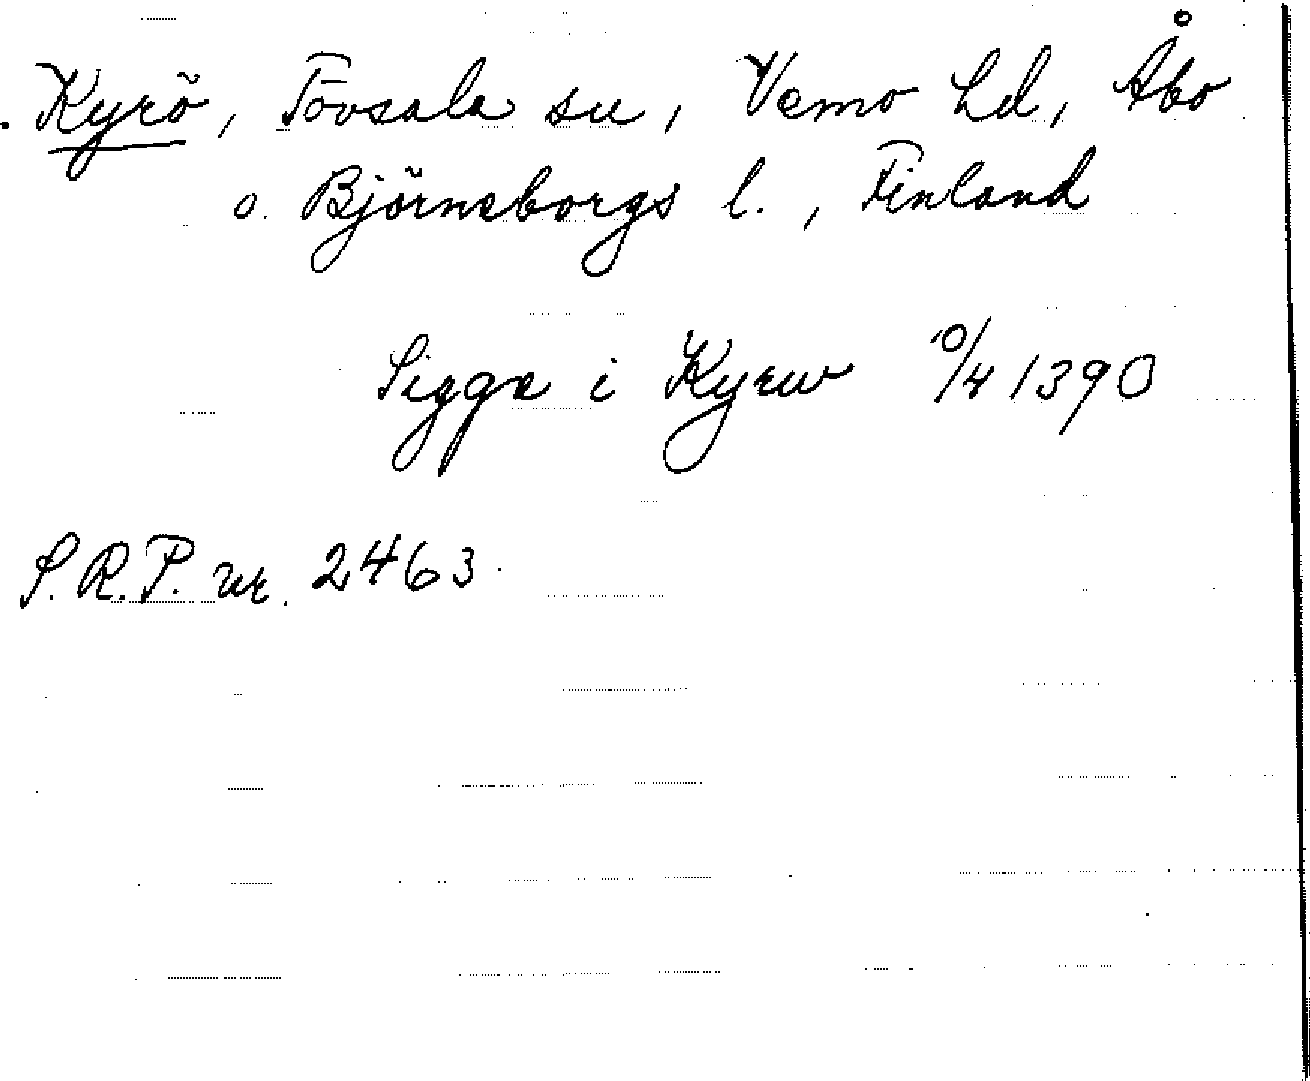 Kyrö, Tövsala sn, Vemo hd, Åbo
o. Björneborgs l., Finland
Sigge i Kyrw 10/4 1390
S.R.P. nr. 2463.